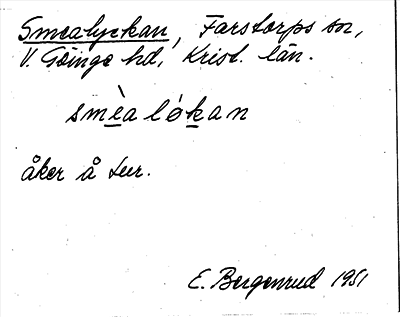 Smealyckan, Farstorps sn,
V. Göinge hd, Krist. län.
smèa lókan
åker å tur.
E. Bergenrud 1951